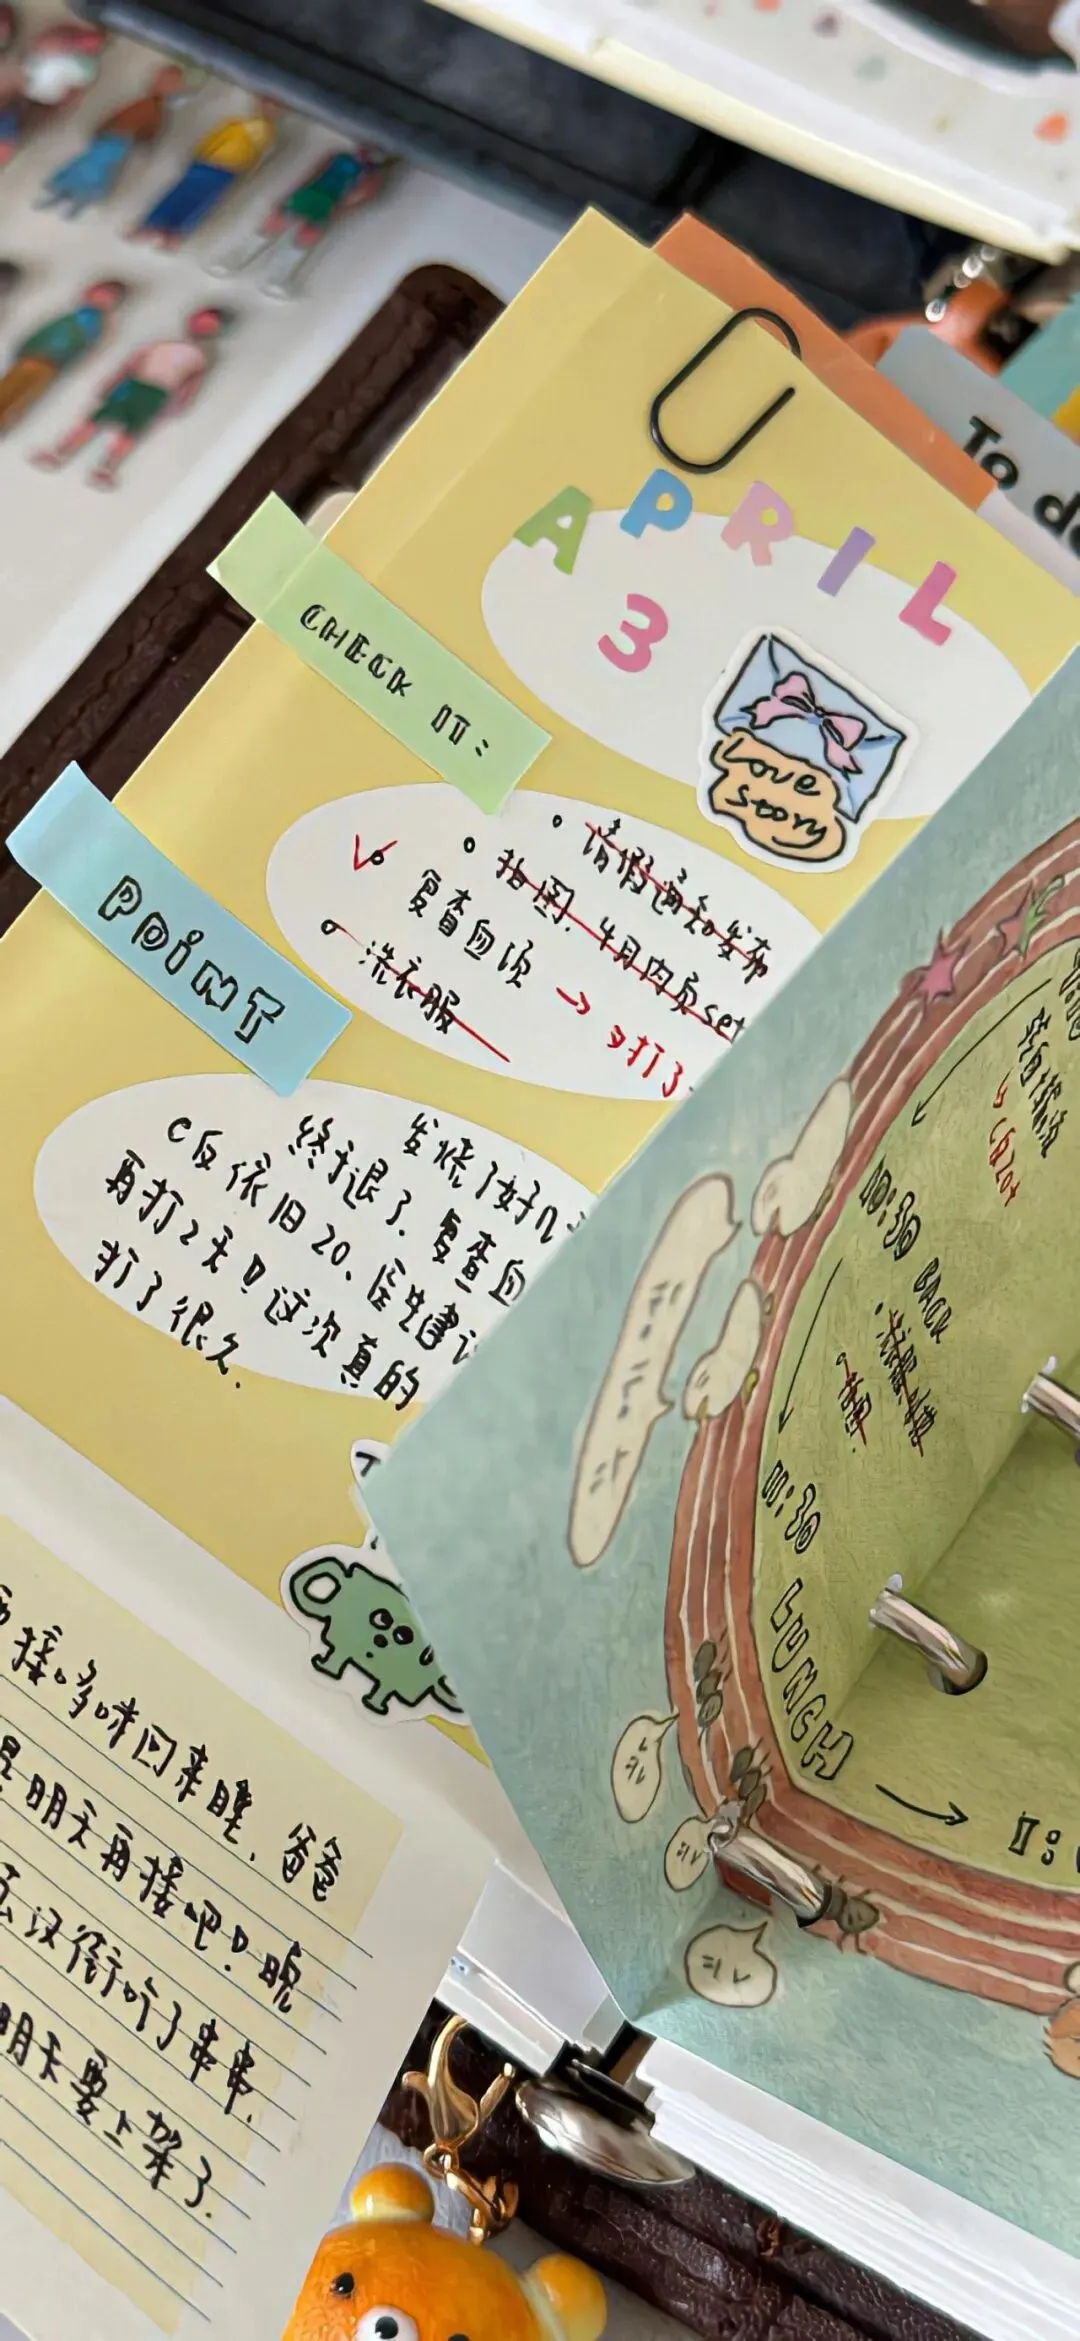 To d
APRIL
3
Love
Story
CHECK IT:
请假通知发布
拍图、4月内页set
复查血项 → 打3
洗衣服
POINT
发烧了好几
终于退了、复查血
C反依旧20、医生建议
再打2天！这次真的
打了很久.
接哆咪回来睡、爸爸
明天再接吧！晚
汉街吃了串串.
明天要上架了.
10:30 BACK
11:30 LUNCH